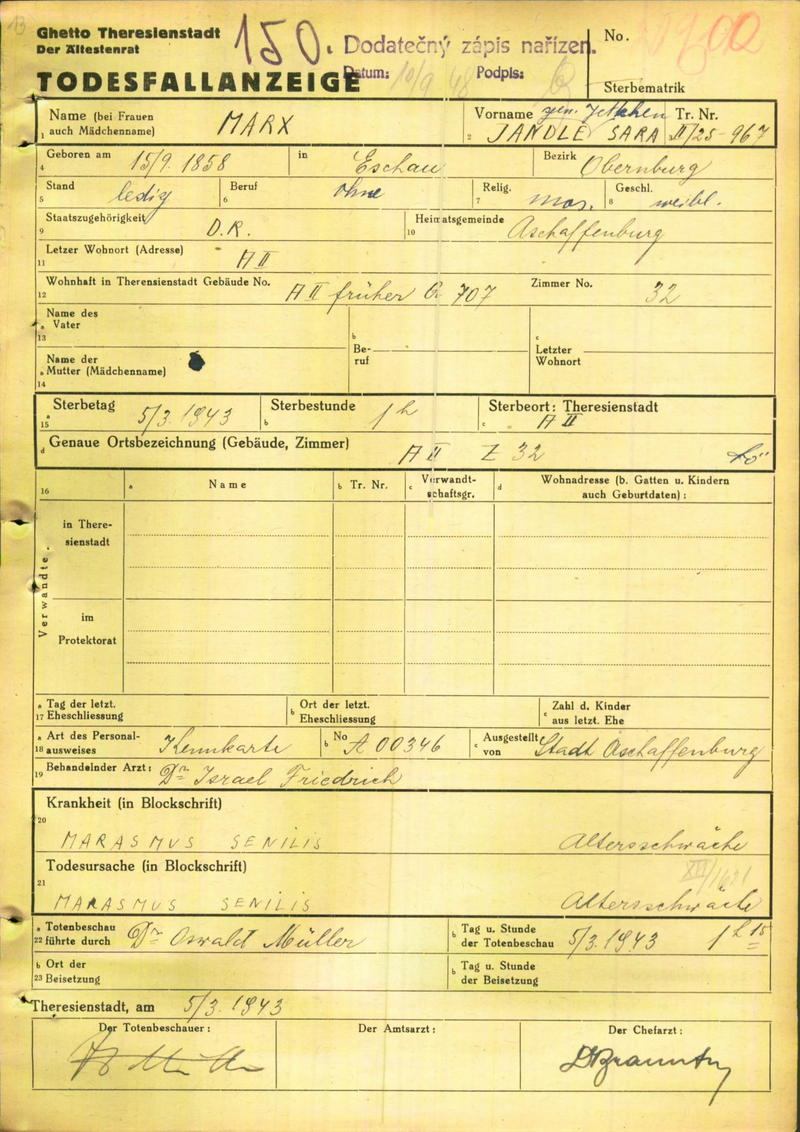 Ghetto Theresienstadt
Der Ältestenrat
TODESFALLANZEIGE
150.
Dodatečný zápis nařízen.
Datum: 10/9 48 Podpis:
No.
Sterbematrik
Name (bei Frauen auch Mädchenname) MARX
1
Vorname gen. Jettchen
2 JANDLE SARA
Tr. Nr. II/25-967
4 Geboren am 15/9. 1858 in Eschau Bezirk Obernburg
5 Stand ledig 6 Beruf ohne 7 Relig. mos. 8 Geschl. weibl.
9 Staatszugehörigkeit D.R. 10 Heimatsgemeinde Aschaffenburg
11 Letzer Wohnort (Adresse) A II
12 Wohnhaft in Theresienstadt Gebäude No. A II früher Q 707 Zimmer No. 32
13 a Name des Vater
b Beruf
c Letzter Wohnort
14 a Name der Mutter (Mädchenname)
15 a Sterbetag 5/3. 1943 b Sterbestunde 1 h c Sterbeort: Theresienstadt A II
d Genaue Ortsbezeichnung (Gebäude, Zimmer) A II Z 32
16 a Name b Tr. Nr. c Verwandtschaftsgr. d Wohnadresse (b. Gatten u. Kindern auch Geburtdaten):
Verwandte
in Theresienstadt
im Protektorat
17 a Tag der letzt. Eheschliessung b Ort der letzt. Eheschliessung c Zahl d. Kinder aus letzt. Ehe
18 a Art des Personalausweises Kennkarte b No A 00346 c Ausgestellt von Stadt Aschaffenburg
19 Behandelnder Arzt: Dr Israel Friedrich
Krankheit (in Blockschrift)
20 MARASMUS SENILIS Altersschwäche
Todesursache (in Blockschrift)
21 MARASMUS SENILIS Altersschwäche
22 a Totenbeschau führte durch Dr Oswald Müller b Tag u. Stunde der Totenbeschau 5/3. 1943 1 h 15
23 b Ort der Beisetzung b Tag u. Stunde der Beisetzung
Theresienstadt, am 5/3. 1943
Der Totenbeschauer: Der Amtsarzt: Der Chefarzt: